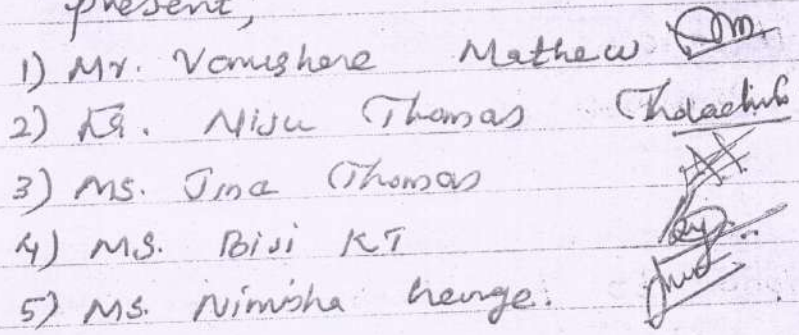 present,
1) Mr. Vamshere Mathew
2) Fr. Niju Thomas
3) Ms. Jina Thomas
4) Ms. Biji KT
5) Ms. Nimisha